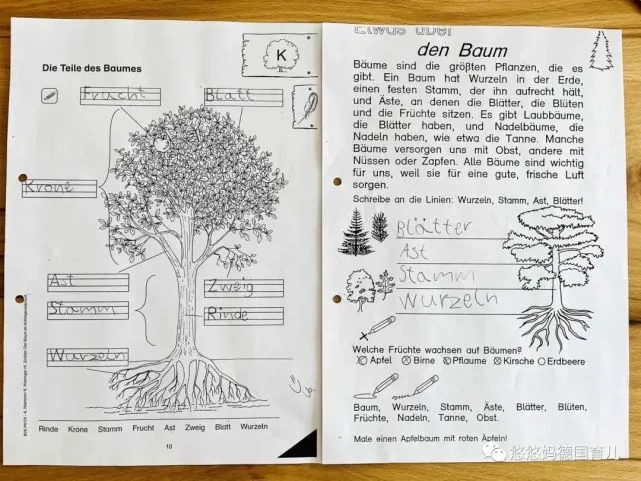 Die Teile des Baumes
K
Frucht
Blatt
Krone
Ast
Zweig
Stamm
Rinde
Wurzeln
Rinde Krone Stamm Frucht Ast Zweig Blatt Wurzeln
10
Etwas über
den Baum
Bäume sind die größten Pflanzen, die es
gibt. Ein Baum hat Wurzeln in der Erde,
einen festen Stamm, der ihn aufrecht hält,
und Äste, an denen die Blätter, die Blüten
und die Früchte sitzen. Es gibt Laubbäume,
die Blätter haben, und Nadelbäume, die
Nadeln haben, wie etwa die Tanne. Manche
Bäume versorgen uns mit Obst, andere mit
Nüssen oder Zapfen. Alle Bäume sind wichtig
für uns, weil sie für eine gute, frische Luft
sorgen.
Schreibe an die Linien: Wurzeln, Stamm, Ast, Blätter!
Blätter
Ast
Stamm
Wurzeln
Welche Früchte wachsen auf Bäumen?
Apfel Birne Pflaume Kirsche Erdbeere
Baum, Wurzeln, Stamm, Äste, Blätter, Blüten,
Früchte, Nadeln, Tanne, Obst.
Male einen Apfelbaum mit roten Äpfeln!
悠悠妈德国育儿